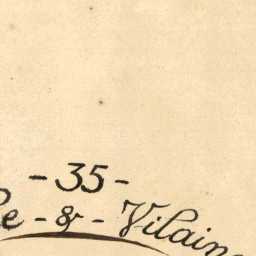 - 35 -
le - & - Vilaine